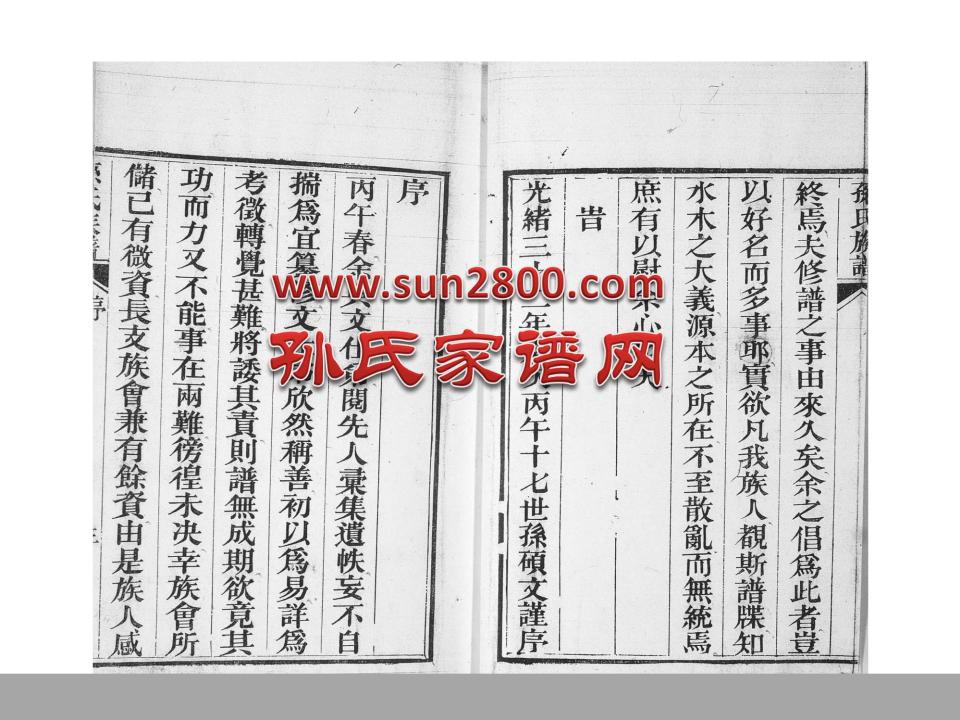 孫氏族譜
終焉夫修譜之事由來久矣余之倡爲此者豈
以好名而多事耶實欲凡我族人觀斯譜牒知
水木之大義源本之所在不至散亂而無統焉
庶有以慰
旹
光緒三十二年 丙午十七世孫碩文謹序
序
丙午春余 文 閱先人彙集遺帙妄不自
揣爲宜纂修文 欣然稱善初以爲易詳爲
考徵轉覺甚難將諉其責則譜無成期欲竟其
功而力又不能事在兩難徬徨未决幸族會所
儲已有微資長支族會兼有餘資由是族人感
序
www.sun2800.com
孙氏家谱网